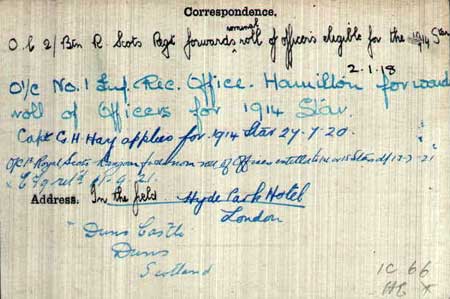 Correspondence.
O.C 2/ Btn R. Scots Regt forwards nominal roll of officers eligible for the 1914 Star
2.1.18
O i/c No. 1 Inf. Rec. Office. Hamilton forward
roll of Officers for 1914 Star.
Capt G H Hay applies for 1914 Star 27.7.20.
Royal Scots nom roll of Officers entitled
Address. In the field Hyde Park Hotel
London
Duns Castle
Duns
Scotland
IC 66
HB X